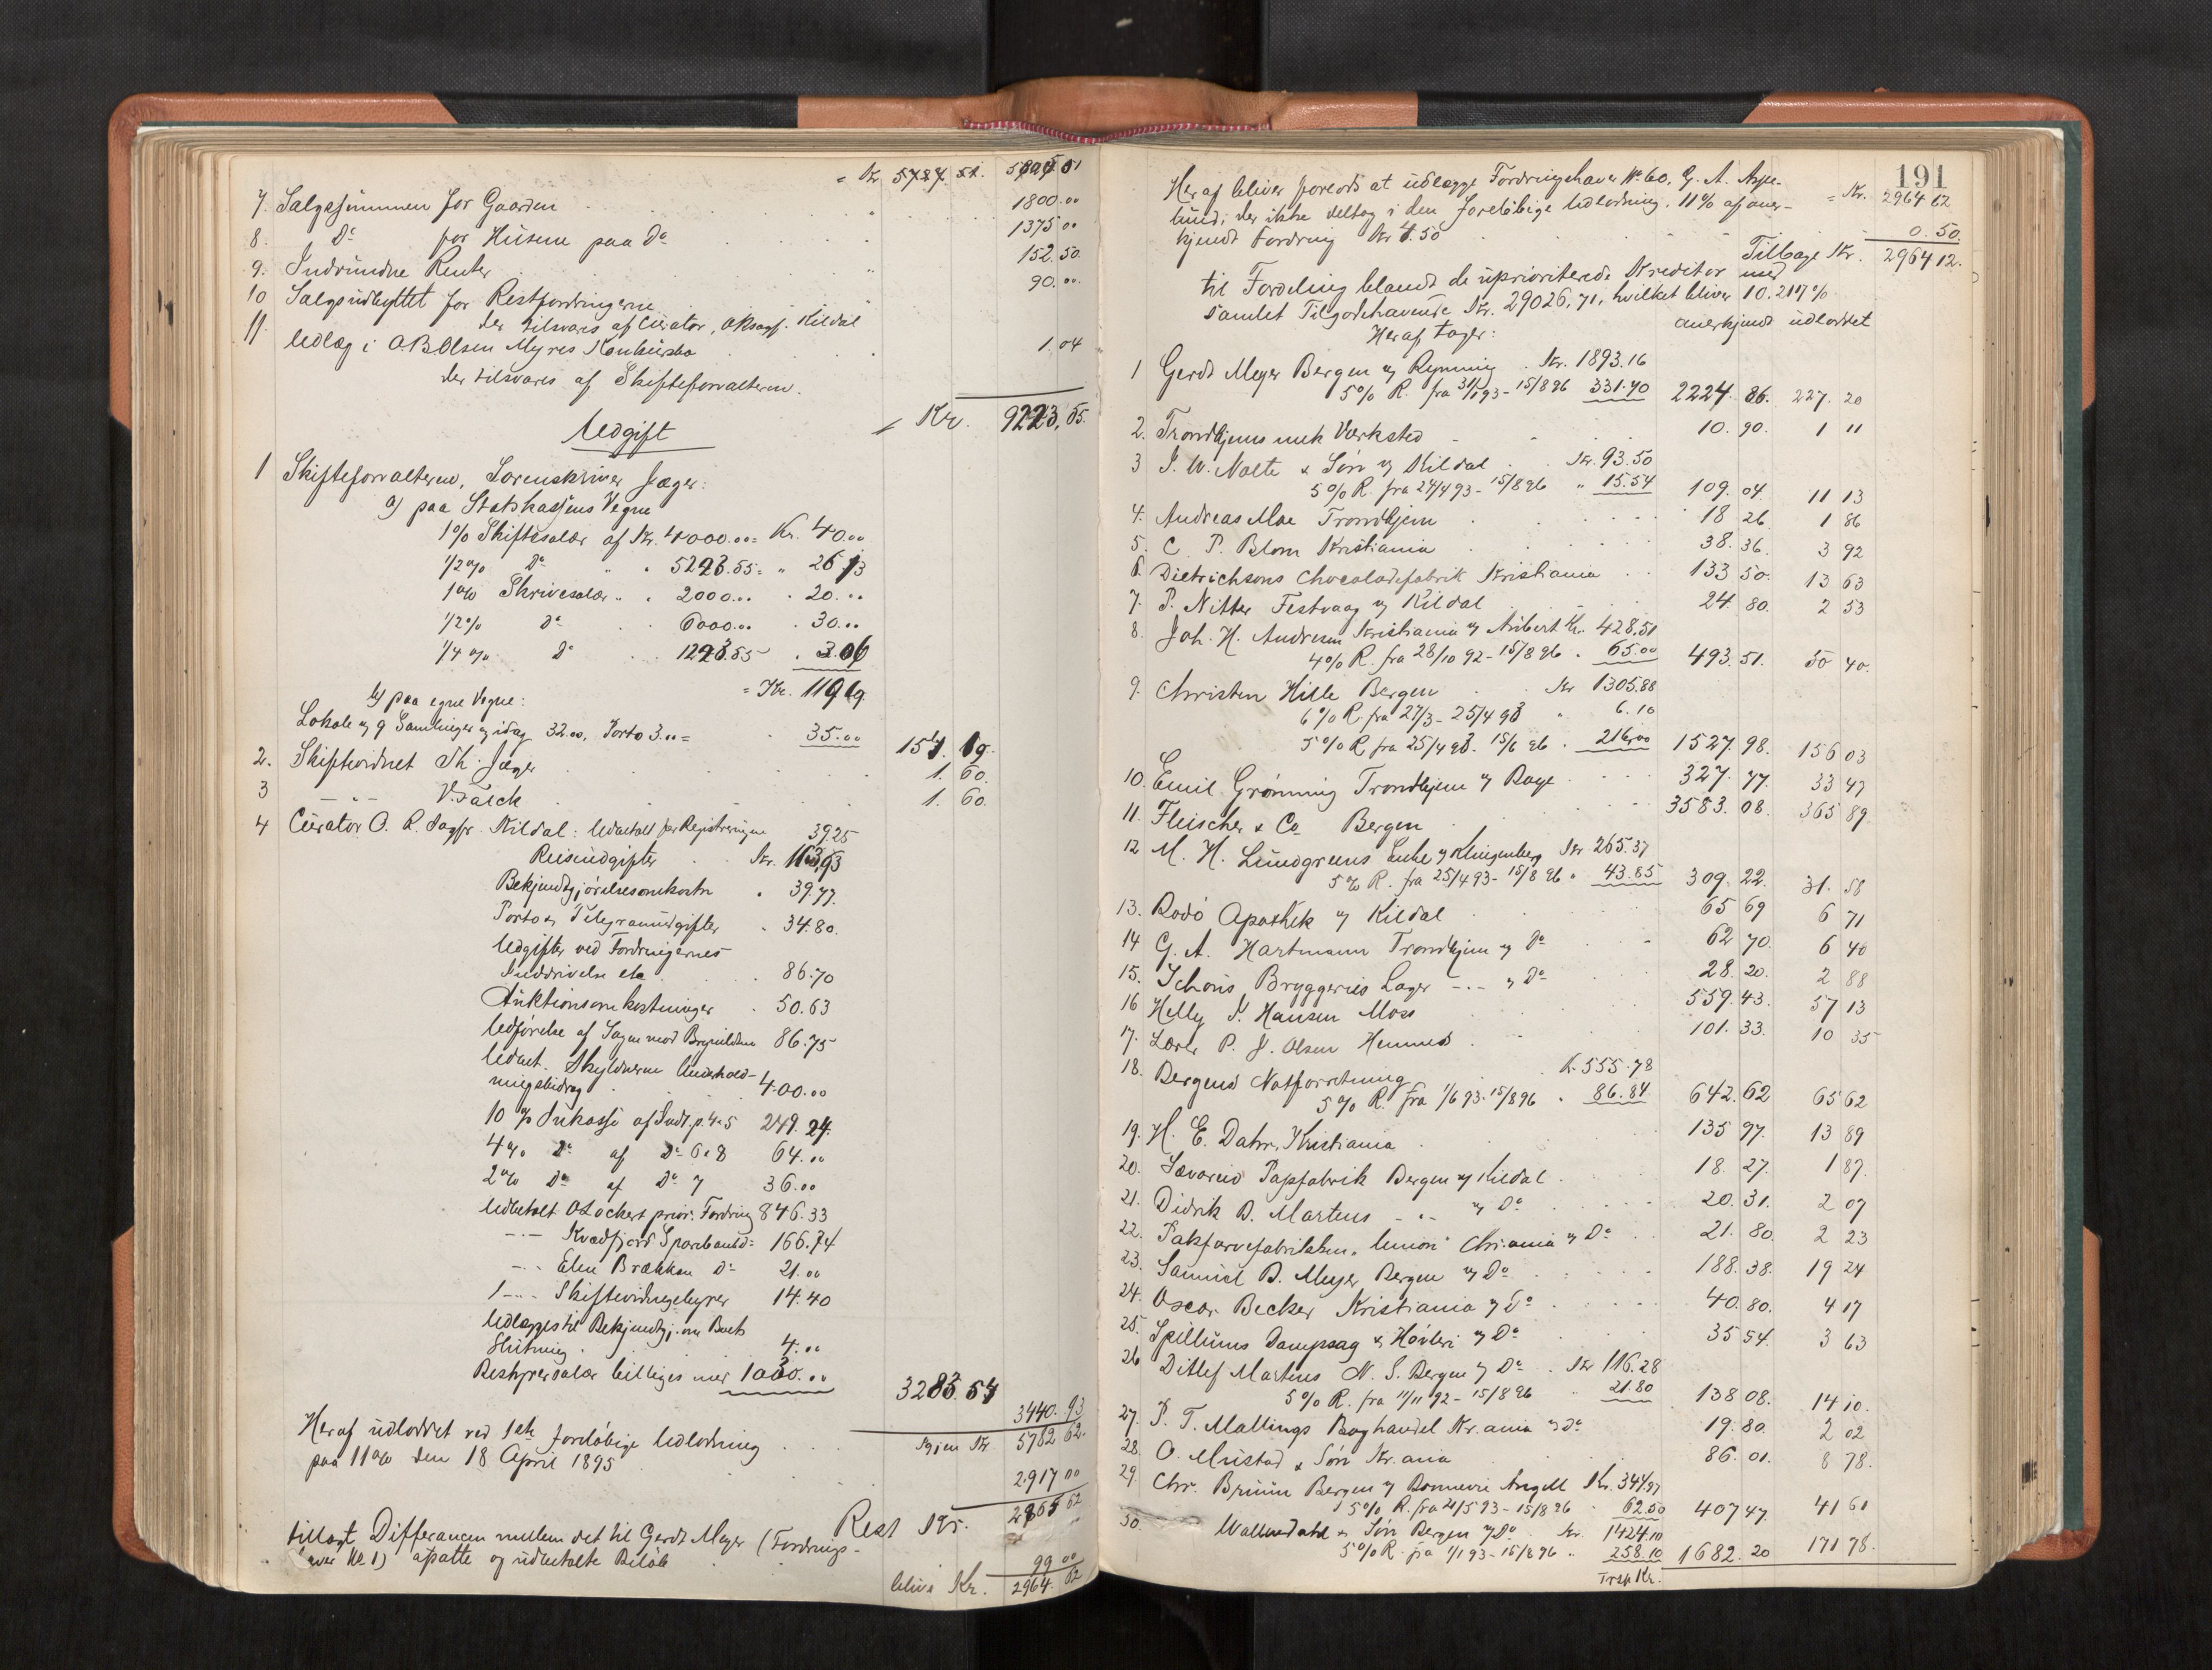 = Kr. 5727.51. 5805 01
7. Salgssummen for Gaarden . . . " 1800.00
8. Do for Husene paa Do . . . . 1375 00
9. Indvundne Renter . . . " 152.50.
10 Salgsudbyttet for Restfordringerne . . . " 90.00
der tilsvares af Curator, Oksagf. Kildal
11 Udlæg i O.B. Olsen Myres Konkursbo . . . 1.04
der tilsvares af Skifteforvalteren.
= Kr. 9223,55.
Udgift
1 Skifteforvalteren, Sorenskriver Jæger:
a) paa Statskassens Vegne
1% Skiftesalær af Kr. 4000.00 = Kr. 40.00
1/2% Do " . 5223.55 = " 26.13
1% Skrivesalær " . 2000.00 . 20.00
1/2% Do . . 6000.00 . 30.00
1/4% Do . . 1223.55 . 3.06
= Kr. 119.19
b) paa egne Vegne:
Lokale og 9 Samlinger og idag 32.00, Porto 3.00 = . 35.00 154. 19.
2. Skiftevidnet Th. Jæger . . . 1. 60.
3 — " — V. Falck . . . 1. 60.
4 Curator O. R. Sagfr. Kildal: Udbetalt for Registreringen 39.25
Reiseudgifter . . Kr. 163,93
Bekjendtgjørelsesomkostn . 39.77.
Porto & Telegramudgifter . 34.80.
Udgifter ved Fordringernes
Inddrivelse etc . . 86.70
Auktionsomkostninger . 50.63
Udførelse af Sagen mod 86.75
Udbet. Skyldneren Underhold-
ningsbidrag . 400.00
10 % Inkasso af Indt. p. 4 & 5 249. 24.
4% Do af Do 6 & 8 64.00
2% Do af Do 7 36.00
Udbetalt O Lockert prior. Fordring 846.33
—"— Kvædfjord Sparebank Do 166.74
—"— Elen Brækkan Do 21.00
—"— Skiftevidnegebyrer 14.40
Udlægges til Bekjendtgj. om Boets
Slutning . 4.00
Restpræsalær billiges med 1000.00
3283. 54
3440. 93
Igjen Kr. 5782 62.
Heraf udloddet ved 1ste foreløbige Udlodning
paa 11% den 18 April 1895 . . . 2917 00
Rest Kr. 2865 62
tillagt Differancen mellem det til Gerdt Meyer (Fordrings-
haver No 1) afsatte og udbetalte Beløb . . 99 00
bliver Kr. 2964. 62
191
Heraf bliver forlods at udlægge Fordringshaver No 60, G. A. Aspe-
lund, der ikke deltog i den foreløbige Udlodning, 11% af aner- = Kr. 2964 62
kjendt Fordring Kr 4.50 . . . 0.50.
Tilbage Kr. 2964 12.
til Fordeling blandt de uprioriterede Kreditor med
samlet Tilgodehavende Kr. 29026,71, hvilket bliver 10.217%
Heraf tager: anerkjendt udloddet
1 Gerdt Meyer Bergen v/ Rynning . Kr. 1893.16
5% R. fra 31/1 93 - 15/8 96 331.70 2224. 86. 227. 20
2. Trondhjems mek Værksted . . . 10. 90. 1 11
3 J. W. Nolte & Søn v/ Kildal . . Kr. 93.50
5% R. fra 24/4 93 - 15/8 96 " 15.54 109. 04. 11 13
4. Andreas Moe Trondhjem . . . 18 26. 1 86
5. C. P. Blom Kristiania . . . 38. 36. 3 92
6. Dietrichsons Chocoladefabrik Kristiania . . 133 50. 13 63
7. P. Nitter Festvaag v/ Kildal . . . 24. 80. 2 53
8. Joh. H. Andresen Kristiania v/ Aubert Kr. 428.51
4% R. fra 28/10 92 - 15/8 96 . 65.00 493. 51. 50 40.
9. Christen Hille Bergen . . Kr 1305.88
6% R. fra 27/3 - 25/4 93 " 6.10
5% R. fra 25/4 93. 15/8 96 . 216.00 1527. 98. 156 03
10. Emil Grønning Trondhjem v/ Bage . . . 327. 77. 33 47
11. Fleischer & Co Bergen . . . 3583. 08. 365 89.
12 M. H. Lundgreens Enke v/ Klingenberg Kr 265.37
5% R. fra 25/4 93 - 15/8 96 " 43.85 309. 22. 31. 58
13. Bodø Apothek v/ Kildal . . . 65 69 6 71
14 G. A. Hartmann Trondhjem v/ Do . 62 70. 6 40
15. Schous Bryggeries Lager — " — v/ Do . . 28. 20. 2 88
16 Helly J. Hansen Moss . . . 559. 43. 57 13
17. Lars P. J. Olsen Hemnes . . . 101. 33. 10 35
18. Bergens Notforretning . . . Kr. 555.78
5% R. fra 1/6 93 - 15/8 96 . 86.84 642. 62 65 62
19. H. E. Dahn, Kristiania . . . 135 97. 13 89
20. Sævareid Papfabrik Bergen v/ Kildal . . . 18. 27. 1 87.
21. Didrik D. Martens — " — v/ Do . . . 20. 31. 2 07
22. Pakfarvefabrikken "Union" Chr.ania v/ Do . . 21. 80. 2 23
23. Samuel B. Meyer Bergen v/ Do . . . 188. 38. 19 24
24. Oscar Becker Kristiania v/ Do . . . 40. 80. 4 17
25. Spillums Dampsag & Høvleri v/ Do . . . 35 54. 3 63
26 Ditlef Martens N. S. Bergen v/ Do . Kr 116.28
5% R. fra 11/11 92 - 15/8 96 " 21.80 138 08. 14 10.
27. P. T. Mallings Boghandel Kr.ania v/ Do . . 19. 80. 2 02
28. O. Mustad & Søn Kr.ania . . . 86. 01. 8 78.
29 Chr. Bruun Bergen v/ Bonnevie Angell Kr. 344.97
5% R. fra 21/5 93 - 15/8 96 . 62.50 407 47. 41 61
30. Wallendahl & Søn Bergen v/ Do . Kr. 1424.10
5% R. fra 1/1 93 - 15/8 96 " 258.10 1682. 20 171 78.
Trsp. Kr.